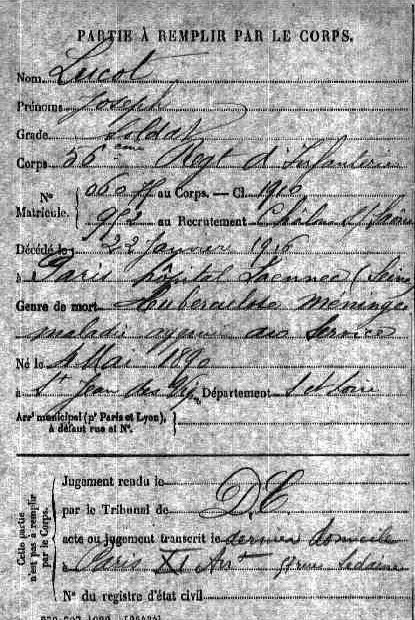 PARTIE À REMPLIR PAR LE CORPS.
Nom Lucot
Prénoms Joseph
Grade soldat
Corps 56ème Regt d'Infanterie
N° Matricule. { 0607 au Corps. — Cl. 1910
982 au Recrutement Chalon s/Saône
Décédé le 22 Janvier 1916
à Paris hôpital Laennec (Seine
Genre de mort Tuberculose méningée
maladie aux service
Né le 4 Mai 1890
à St Jean des Département S et Loire
Arrt municipal (pr Paris et Lyon),
à défaut rue et N°.
Cette partie n'est pas à remplir par le Corps.
Jugement rendu le
par le Tribunal de D.C.
acte ou jugement transcrit le dernier domicile
à Paris XI Arrt Sedaine
N° du registre d'état civil